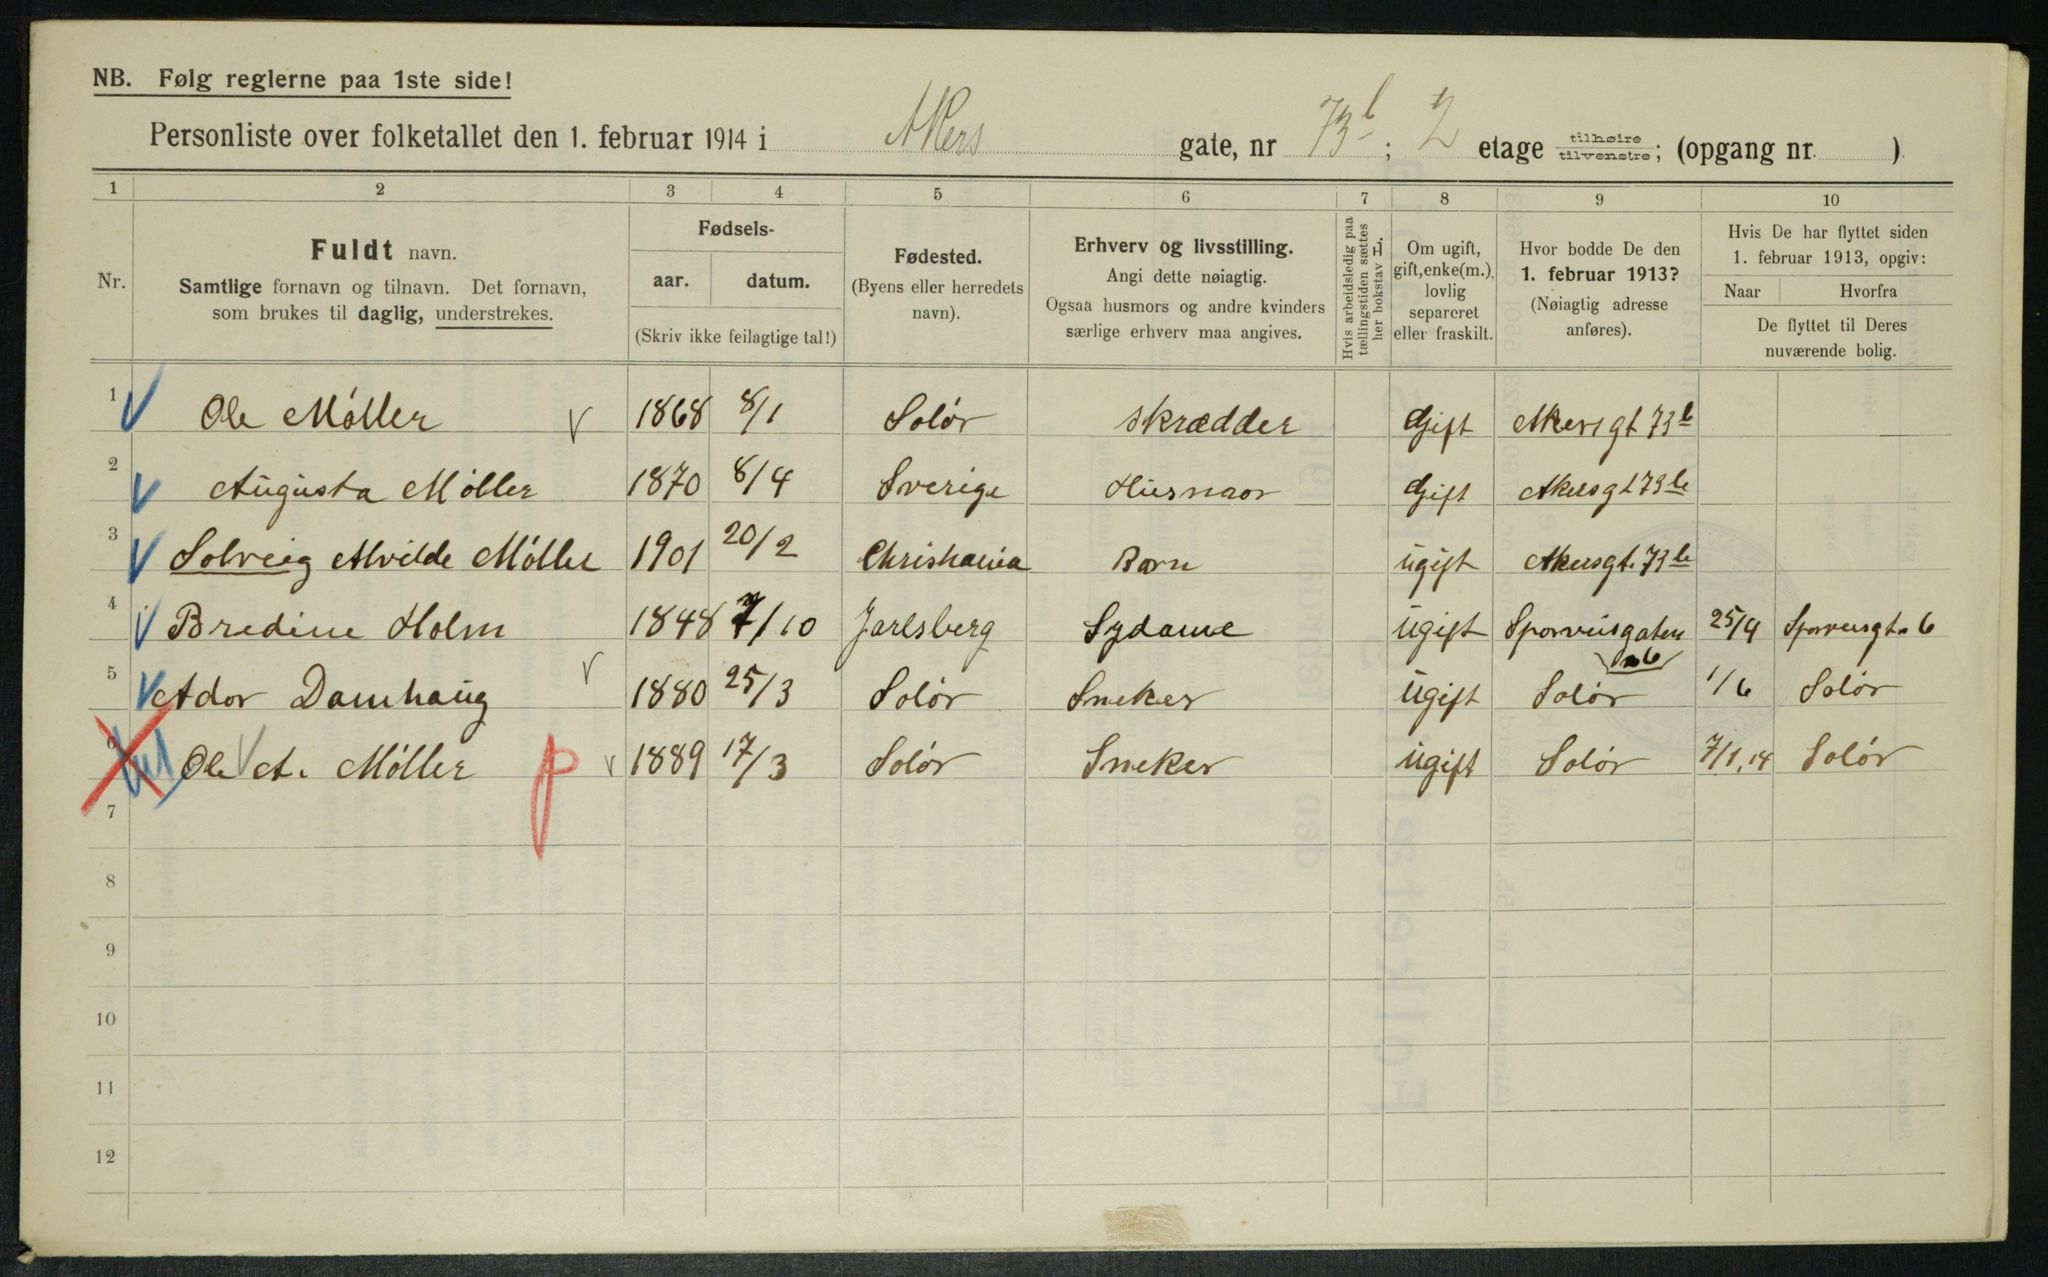 NB. Følg reglerne paa 1ste side!
Personliste over folketallet den 1. februar 1914 i Akers gate, nr 73b; 2 etage tilhøire tilvenstre; (opgang nr. )
1 2 3 4 5 6 7 8 9 10
Nr.
Fuldt navn.
Samtlige fornavn og tilnavn. Det fornavn,
som brukes til daglig, understrekes.
Fødsels-
aar. datum.
(Skriv ikke feilagtige tal!)
Fødested.
(Byens eller herredets
navn).
Erhverv og livsstilling.
Angi dette nøiagtig.
Ogsaa husmors og andre kvinders
særlige erhverv maa angives.
Hvis arbeidsledig paa
tællingstiden sættes
her bokstav H.
Om ugift,
gift, enke(m.),
lovlig
separeret
eller fraskilt.
Hvor bodde De den
1. februar 1913?
(Nøiagtig adresse
anføres).
Hvis De har flyttet siden
1. februar 1913, opgiv:
Naar Hvorfra
De flyttet til Deres
nuværende bolig.
1 Ole Møller 1868 8/1 Solør Skrædder Gift Akersgt 73b
2 Augusta Møller 1870 8/4 Sverige Husmor Gift Akersgt 73b
3 Solveig Alvilde Møller 1901 20/2 Christiania Barn ugift Akersgt. 73b
4 Bredine Holm 1848 7/10 Jarlsberg Sydame ugift Sporveisgaten n6 25/9 Sporveisgt. 6
5 Ador Damhaug 1880 25/3 Solør Sneker ugift Solør 1/6 Solør
6 Ole A. Møller p 1889 17/3 Solør Sneker ugift Solør 7/1,14 Solør
7
8
9
10
11
12